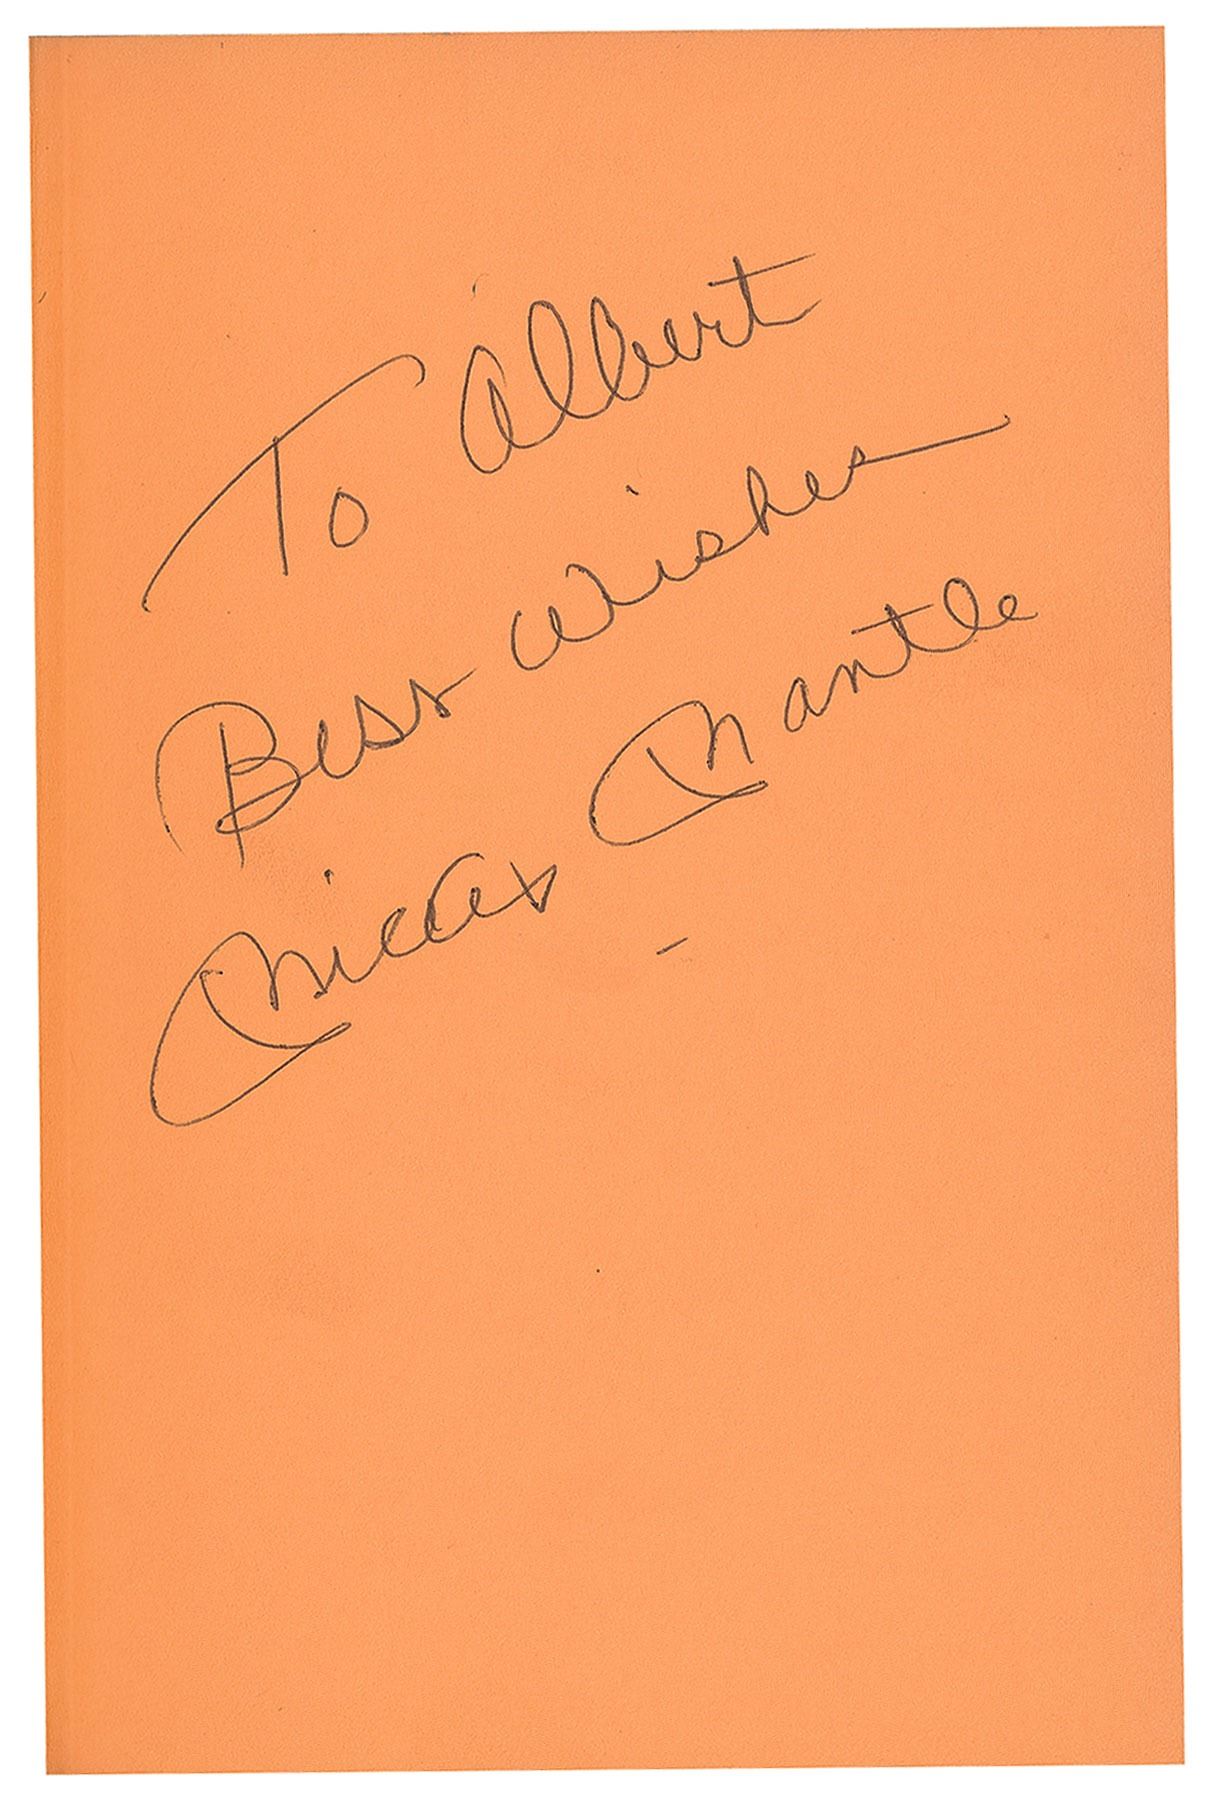 To Albert
Best Wishes
Mickey Mantle